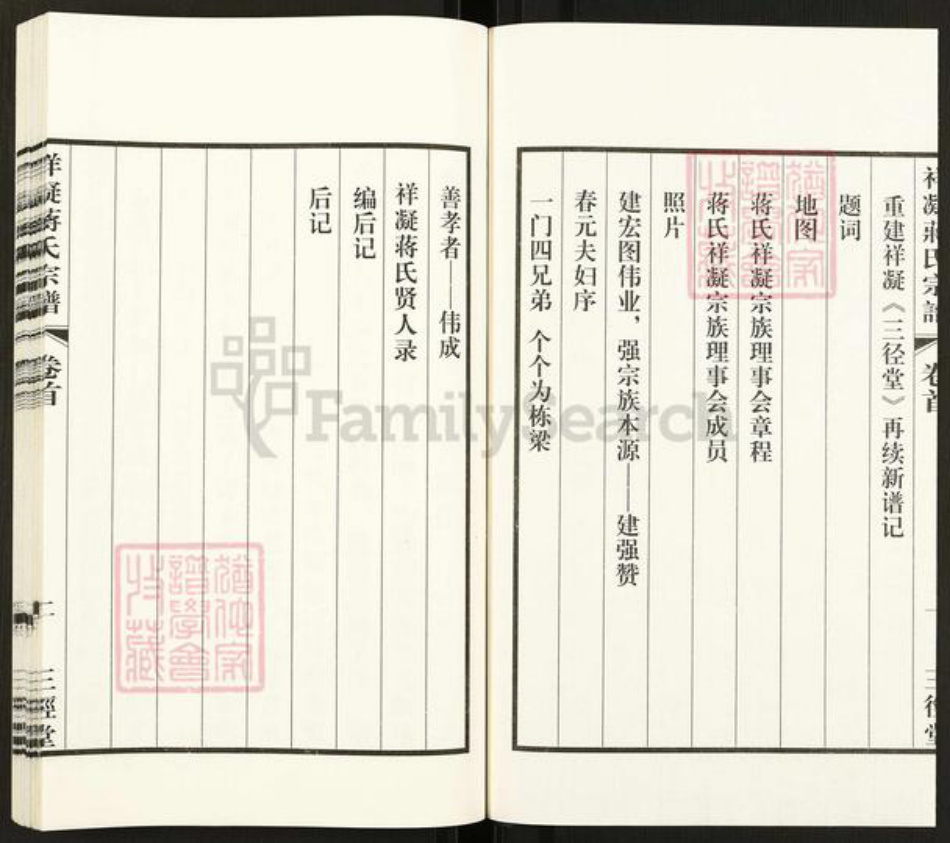 祥凝蒋氏宗譜 卷首 一 三徑堂
重建祥凝《三径堂》再续新谱记
题词
地图
蒋氏祥凝宗族理事会章程
蒋氏祥凝宗族理事会成员
照片
建宏图伟业，强宗族本源——建强赞
春元夫妇序
一门四兄弟 个个为栋梁
善孝者——伟成
祥凝蒋氏贤人录
编后记
后记
祥凝蒋氏宗譜 卷首 二 三徑堂
FamilySearch